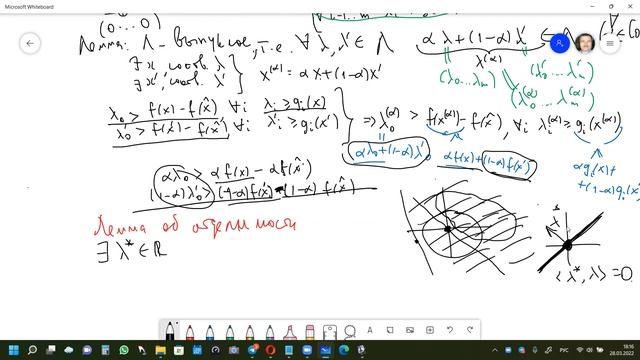 Microsoft Whiteboard
(0...0)
Лемма: Λ - выпуклое, т.е. ∀ λ, λ' ∈ Λ αλ+(1-α)λ' ∈ Λ
λ^(α)
∃ x, соотв. λ
∃ x', соотв. λ'
x^(α) = αx+(1-α)x'
(λ₀...λₘ) (λ'₀...λ'ₘ)
(λ₀^(α)...λₘ^(α))
λ₀ > f(x) - f(x̂) ∀i λᵢ ≥ gᵢ(x)
λ'₀ > f(x') - f(x̂) ∀i λ'ᵢ ≥ gᵢ(x')
⇒ λ₀^(α) > f(x^(α)) - f(x̂), ∀i λᵢ^(α) ≥ gᵢ(x^(α))
αλ₀+(1-α)λ'₀ αf(x)+(1-α)f(x') αgᵢ(x)+
+(1-α)gᵢ(x')
αλ₀ > αf(x) - αf(x̂)
(1-α)λ'₀ > (1-α)f(x') - (1-α) f(x̂)
Лемма об отделимости
∃ λ* ∈ ℝ
λ*
⟨λ*, λ⟩ = 0
РУС
18:16
28.03.2022